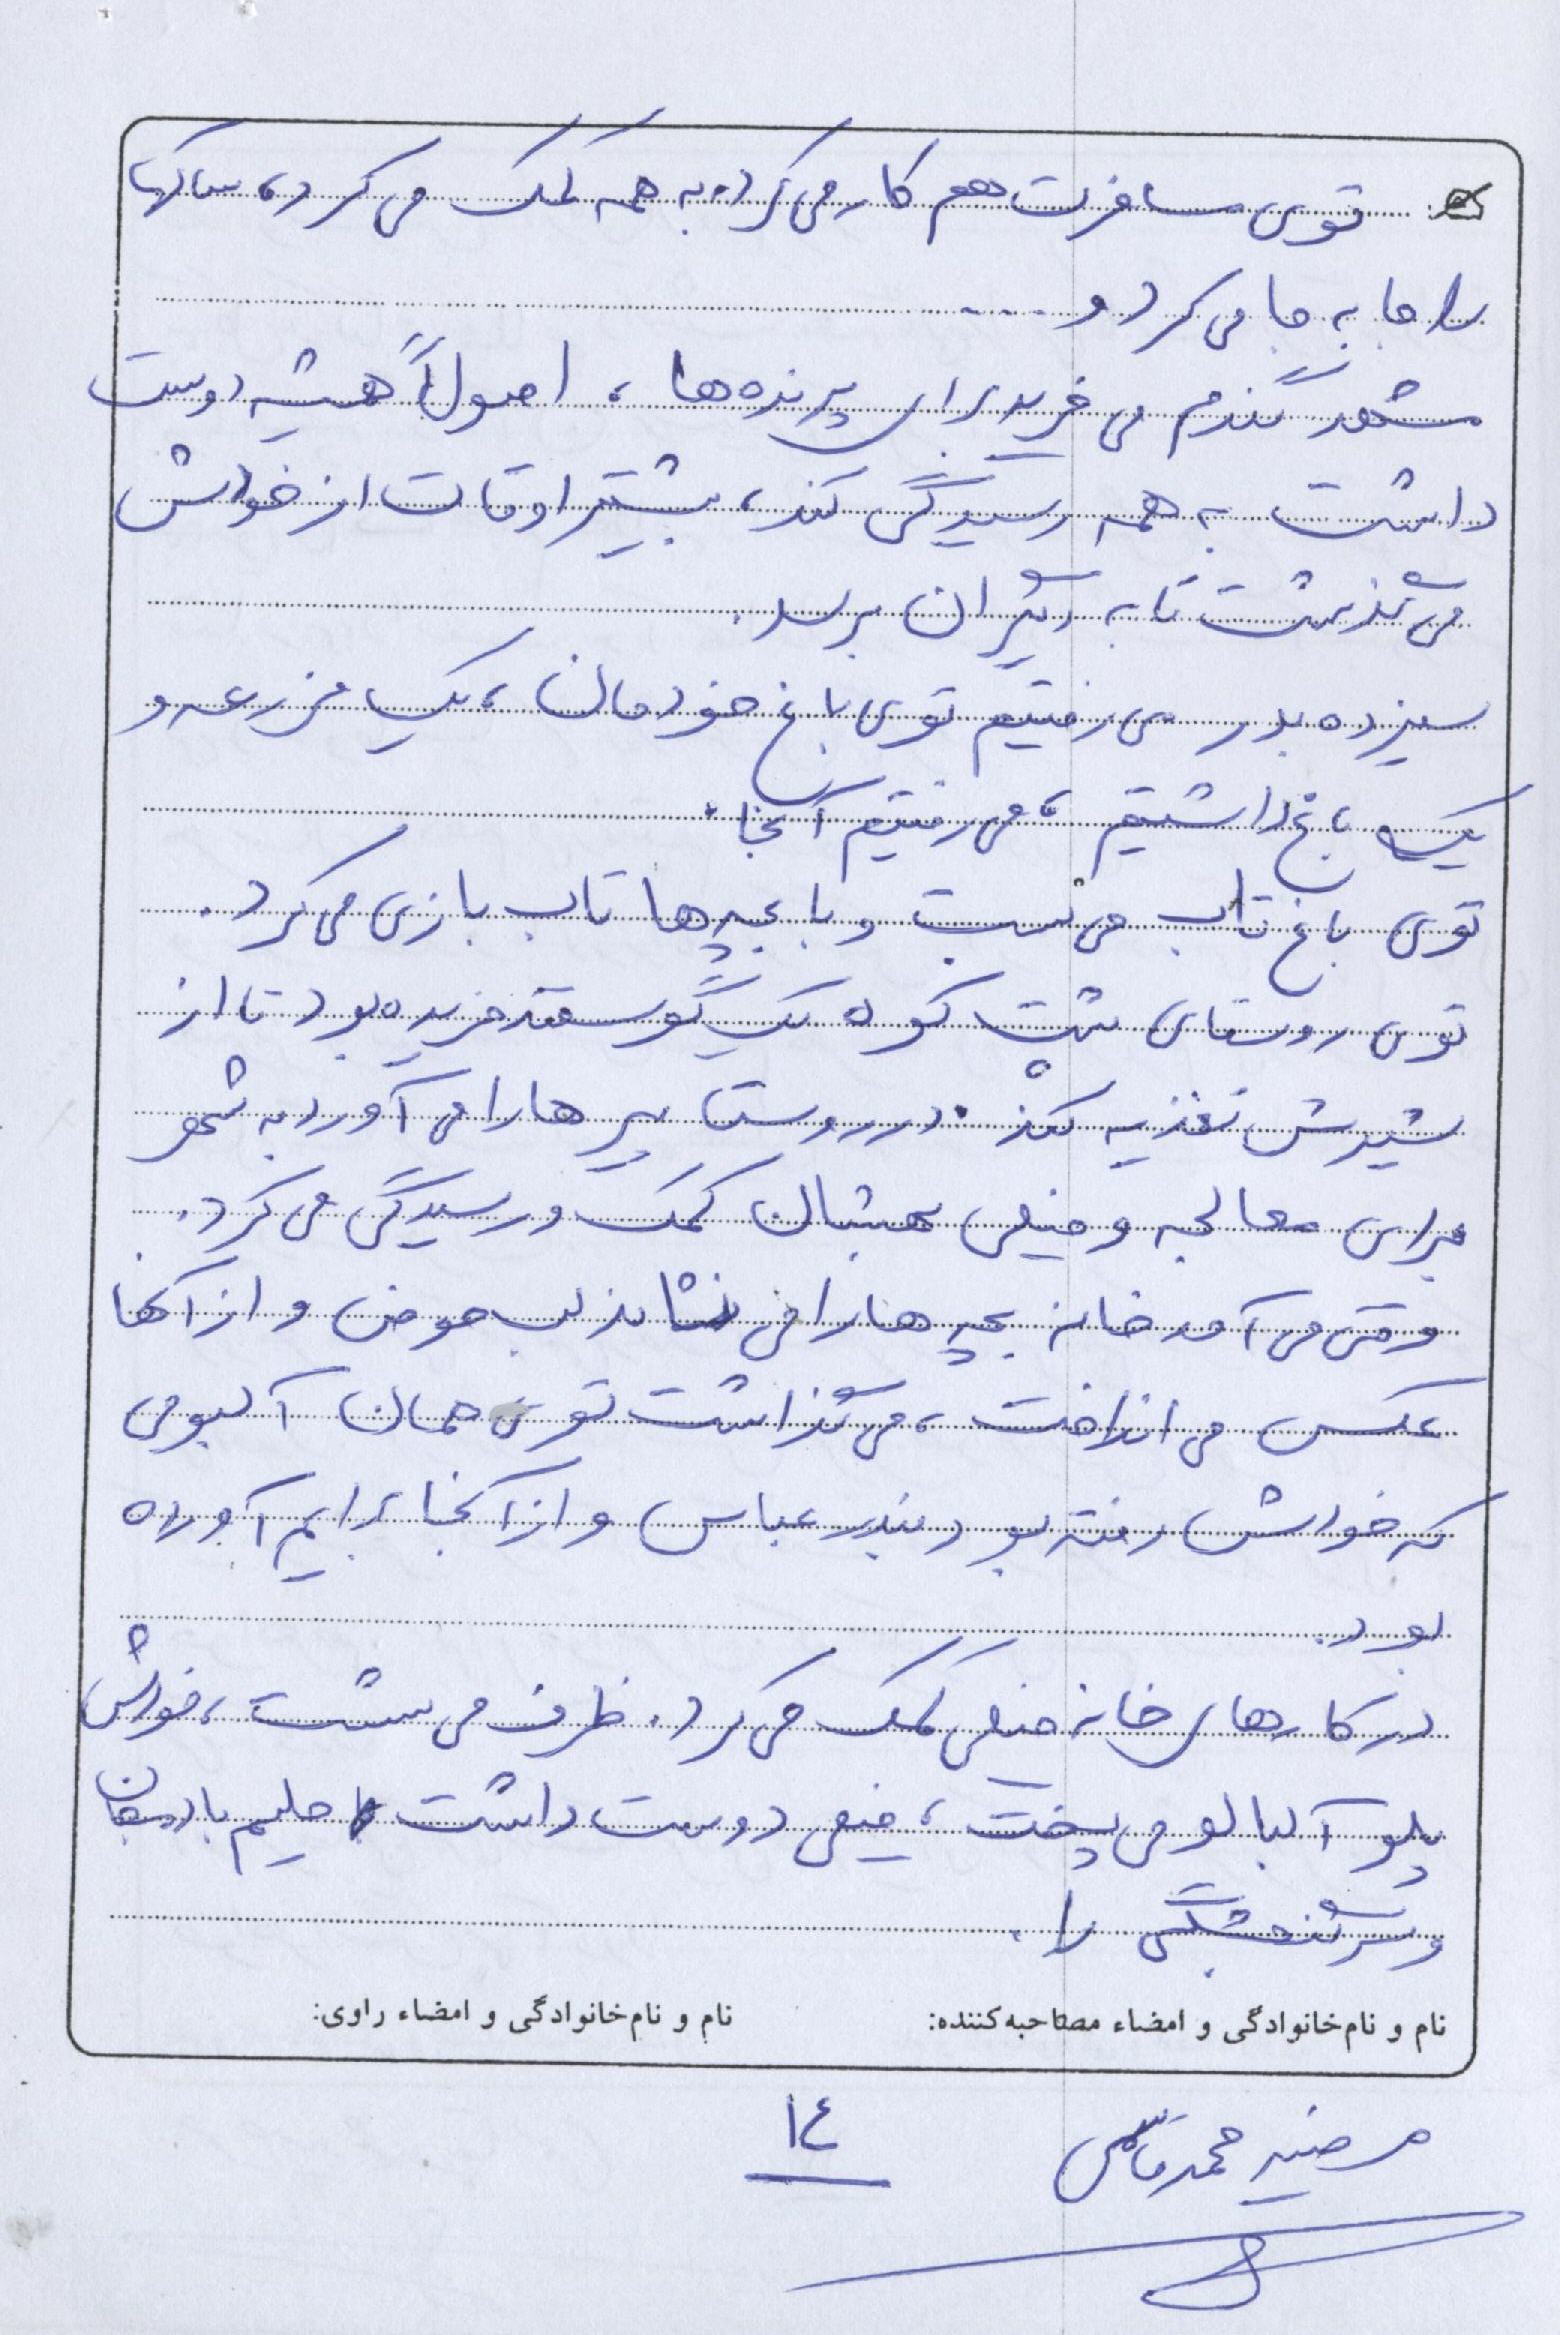 توی مسافرت هم کار می‌کرد، به همه کمک می‌کرد، ساکها
را جا به جا می‌کرد و ....
مشهد گندم می‌خرید برای پرنده‌ها، اصولاً همیشه دوست
داشت به همه رسیدگی کند، بیشتر اوقات از خودش
می‌گذشت تا به دیگران برسد.
سیزده بدر می‌رفتیم توی باغ خودمان، یک مزرعه و
یک باغ داشتیم، می‌رفتیم آنجا.
توی باغ تاب می‌بست و با بچه‌ها تاب بازی می‌کرد.
توی روستای پشت کوه یک گوسفند خریده بود تا از
شیرش تغذیه کند. در روستا پیرها را می‌آورد به شهر
برای معالجه و خیلی بهشان کمک و رسیدگی می‌کرد.
وقتی می‌آمد خانه بچه‌ها را می‌نشاند لب حوض و از آنها
عکس می‌انداخت، می‌گذاشت توی همان آلبومی
که خودش رفته بود بندرعباس و از آنجا برایم آورده
بود.
در کارهای خانه خیلی کمک می‌کرد. ظرف می‌شست، خورش
پلو آلبالو می‌پخت، خیلی دوست داشت حلیم بادمجان
و سر گنجشکی را.
نام و نام‌خانوادگی و امضاء مصاحبه‌کننده: نام و نام‌خانوادگی و امضاء راوی:
مرضیه محمد قاسمی ١٤